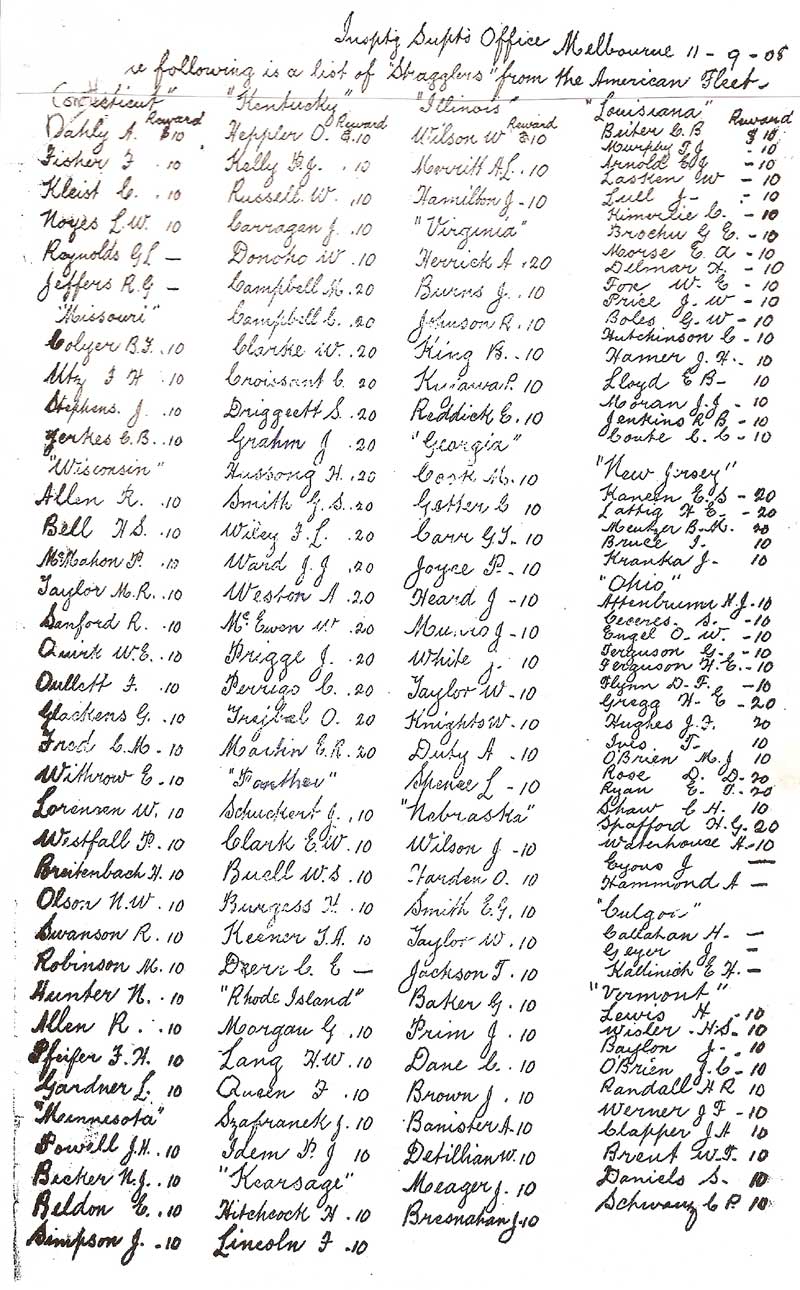 Insptg Supts Office Melbourne 11-9-08
following is a list of "Stragglers" from the American Fleet
Connecticut"
Reward
Dahly A. $10
Fisher F .10
Kleist C. .10
Noyes L.W. 10
Raynolds G L —
Jeffers R.G —
"Missouri"
Colyer B.F. .10
Utz F H .10
Stephens. J. .10
Yerkes C.B. .10
"Wisconsin"
Allen R. .10
Bell H S. .10
McMahon P. .10
Taylor M.R. .10
Sanford R. .10
Quirk W.E. .10
Oullett F. .10
Glackens G. .10
Fred C.M - 10
Withrow E. -10
Lorensen W. 10
Westfall P. .10
Breitenbach H. 10
Olson N.W. 10
Swanson R. .10
Robinson M. 10
Hunter N. .10
Allen R. .10
Pfeifer F.H. 10
Gardner L. 10
"Minnesota"
Powell J.H. .10
Becker N.J. .10
Beldon E. .10
Simpson J. -10
"Kentucky"
Reward
Heppler O. $.10
Kelly P.J. .10
Russell W. .10
Carragan J. .10
Donoho W .10
Campbell M. 20
Campbell C. .20
Clarke W. .20
Croissant C. 20
Driggett S. .20
Grahm J .20
Hussong H. .20
Smith G. S. .20
Wiley F.L. .20
Ward J.J .20
Weston A .20
McEwen W .20
Prigge J. .20
Perrigo C. .20
Treibel O. 20
Martin E.R. 20
"Panther"
Schuckert J. .10
Clark E.W. 10
Buell W.S. .10
Burgess H. .10
Keener T.A. 10
Dzerr C. E —
"Rhode Island"
Morgan G .10
Lang H.W. .10
Queen F .10
Szafranek J. 10
Idem P. J 10
"Kearsage"
Hitchcock H .10
Lincoln F .10
"Illinois"
Reward
Wilson W $10
Merritt A.L. .10
Hamilton J - 10
"Virginia"
Herrick A .20
Burns J. .10
Johnson R. .10
King B. .10
Kujawa P. 10
Reddick E. 10
"Georgia"
Cook M. 10
Getter C 10
Carr G T. .10
Joyce P. - 10
Heard J - 10
J - 10
White J. 10
Taylor W - 10
Knights W - 10
Duty A - 10
Spence L - 10
"Nebraska"
Wilson J - 10
Harden O. 10
Smith E.G. 10
Taylor W. 10
Jackson T. 10
Baker G. 10
Prim J. 10
Dane C. . 10
Brown J. 10
Banister A. 10
Detillian W. 10
Meager J. 10
Bresnahan J. -10
"Louisiana"
Reward
Beiter C. B $ 10
Murphy T J - 10
Arnold E J - 10
Lasken W - 10
Lull J - - 10
Kimvelie C. - 10
Brochu G E. - 10
Morse E. A - 10
Dilmar H. - 10
Fox W. E - 10
Price J. W - 10
Boles G. W - 10
Hutchinson C - 10
Hamer J. H. - 10
Lloyd E B - 10
Moran J.J - 10
Jenkins R B - 10
Coute C. C - 10
"New Jersey"
Kaneen E. S - 20
Lattig H E. - 20
Mentzer B. M. 20
Bruce I. 10
Kranka J - 10
"Ohio"
Attenbrumi H.J - 10
Ceceres. S. - 10
Engel O. W. - 10
Ferguson G. - - 10
Ferguson H.E. - 10
Flynn D. F. - 10
Gregg H. E - 20
Hughes J.F. 20
Ives. T - 10
O'Brien M.J 10
Rose D. D - 20
Ryan E. T. - 20
Shaw C H. 10
Spafford H.G. 20
Waterhouse A - 10
Cyous J —
Hammond A —
"Culgoa"
Callahan H. —
Geyer J —
Kallinich E H. —
"Vermont"
Lewis H - 10
Wisler H.S. - 10
Baylon J - . 10
O'Brien J.C - 10
Randall H R 10
Werner J F - 10
Clapper J A 10
Brent W.F. 10
Daniels S. 10
Schwarz C P. 10